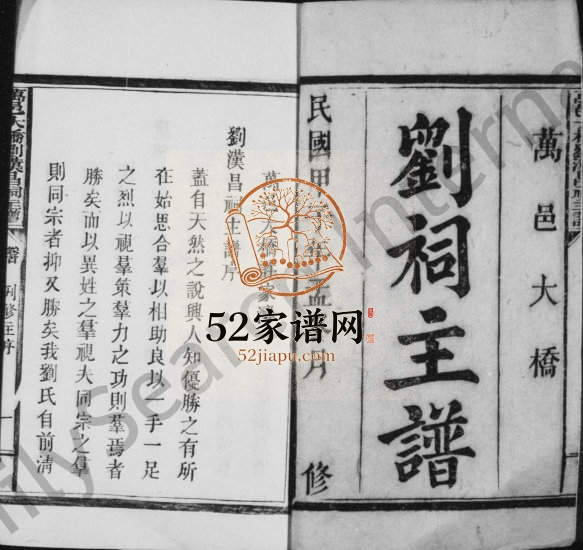 萬邑大橋
劉祠主譜
民國甲
月
修
劉漢昌祠主譜序
蓋自天然之說興人知優勝之有所
在始思合羣以相助良以一手一足
之烈以視羣策羣力之功則羣焉者
勝矣而以異姓之羣視夫同宗之羣
則同宗者抑又勝矣我劉氏自前清
萬邑大橋劉漢昌祠主譜
一
52家谱网
52jiapu.com